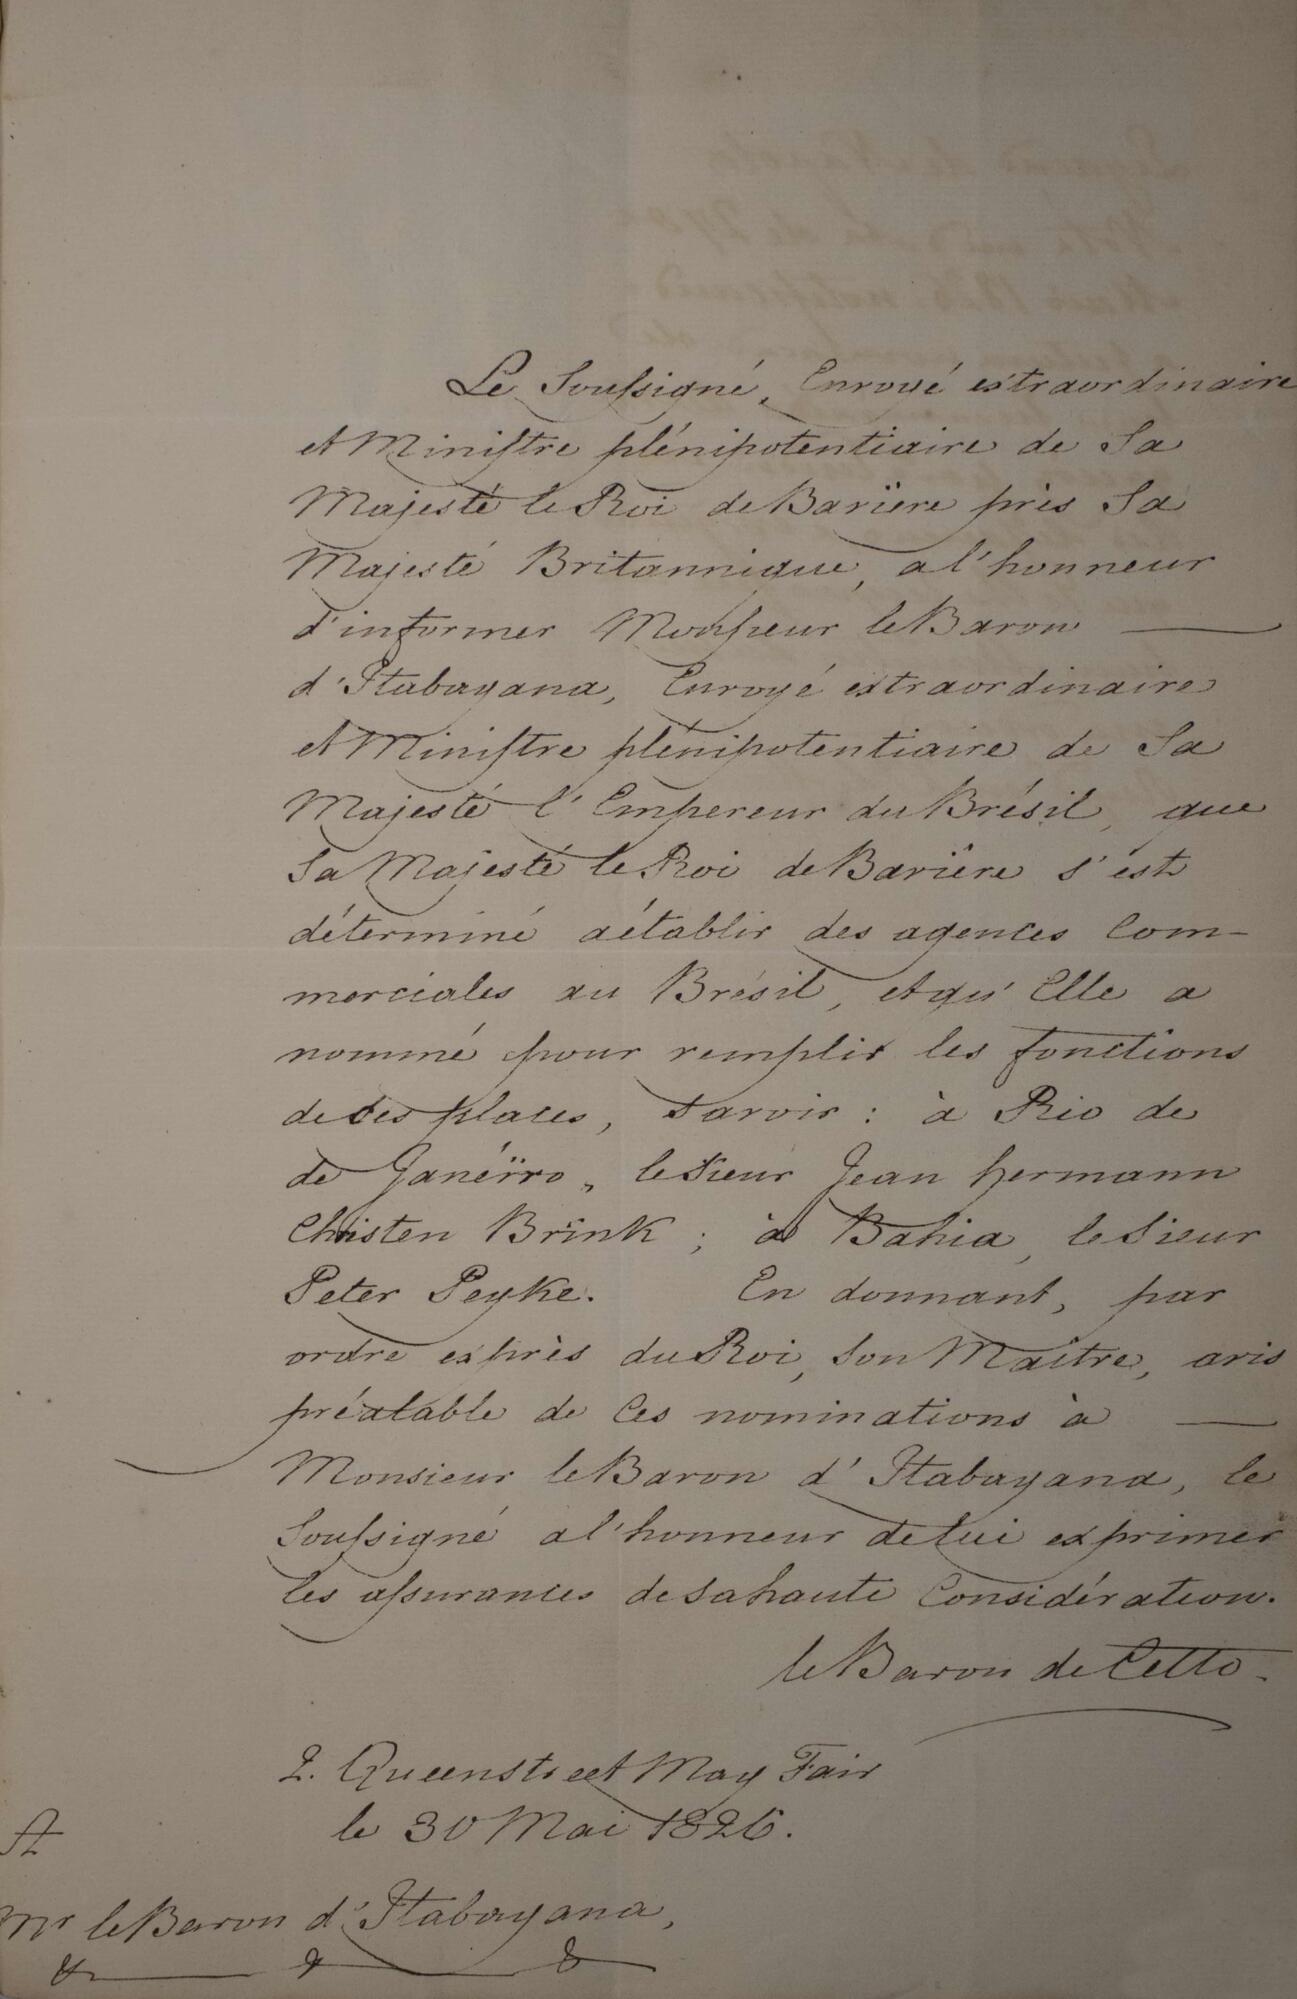 Le Soussigné, Envoyé extraordinaire
et Ministre plénipotentiaire de Sa
Majesté le Roi de Bavière près Sa
Majesté Britannique, a l'honneur
d'informer Monsieur le Baron
d'Itabayana, Envoyé extraordinaire
et Ministre plénipotentiaire de Sa
Majesté l'Empereur du Brésil, que
Sa Majesté le Roi de Bavière s'est
déterminé à établir des agences Com-
merciales au Brésil, et qu'Elle a
nommé pour remplir les fonctions
de ces places, savoir : à Rio de
de Janéïro, le Sieur Jean Hermann
Christen Brink ; à Bahia, le Sieur
Peter Peyke. En donnant, par
ordre exprès du Roi, Son Maître, avis
préalable de Ces nominations à
Monsieur le Baron d'Itabayana, le
Soussigné a l'honneur de lui exprimer
les assurances de sa haute Considération.
le Baron de Cetto.
2. Queenstreet May Fair
le 30 Mai 1826.
A
Mr le Baron d'Itabayana,
& & &